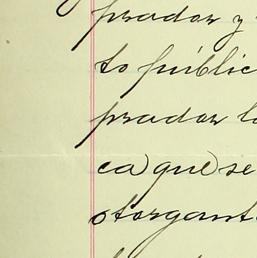 prador y
to públic
prador l
ca) que) se
otorgant